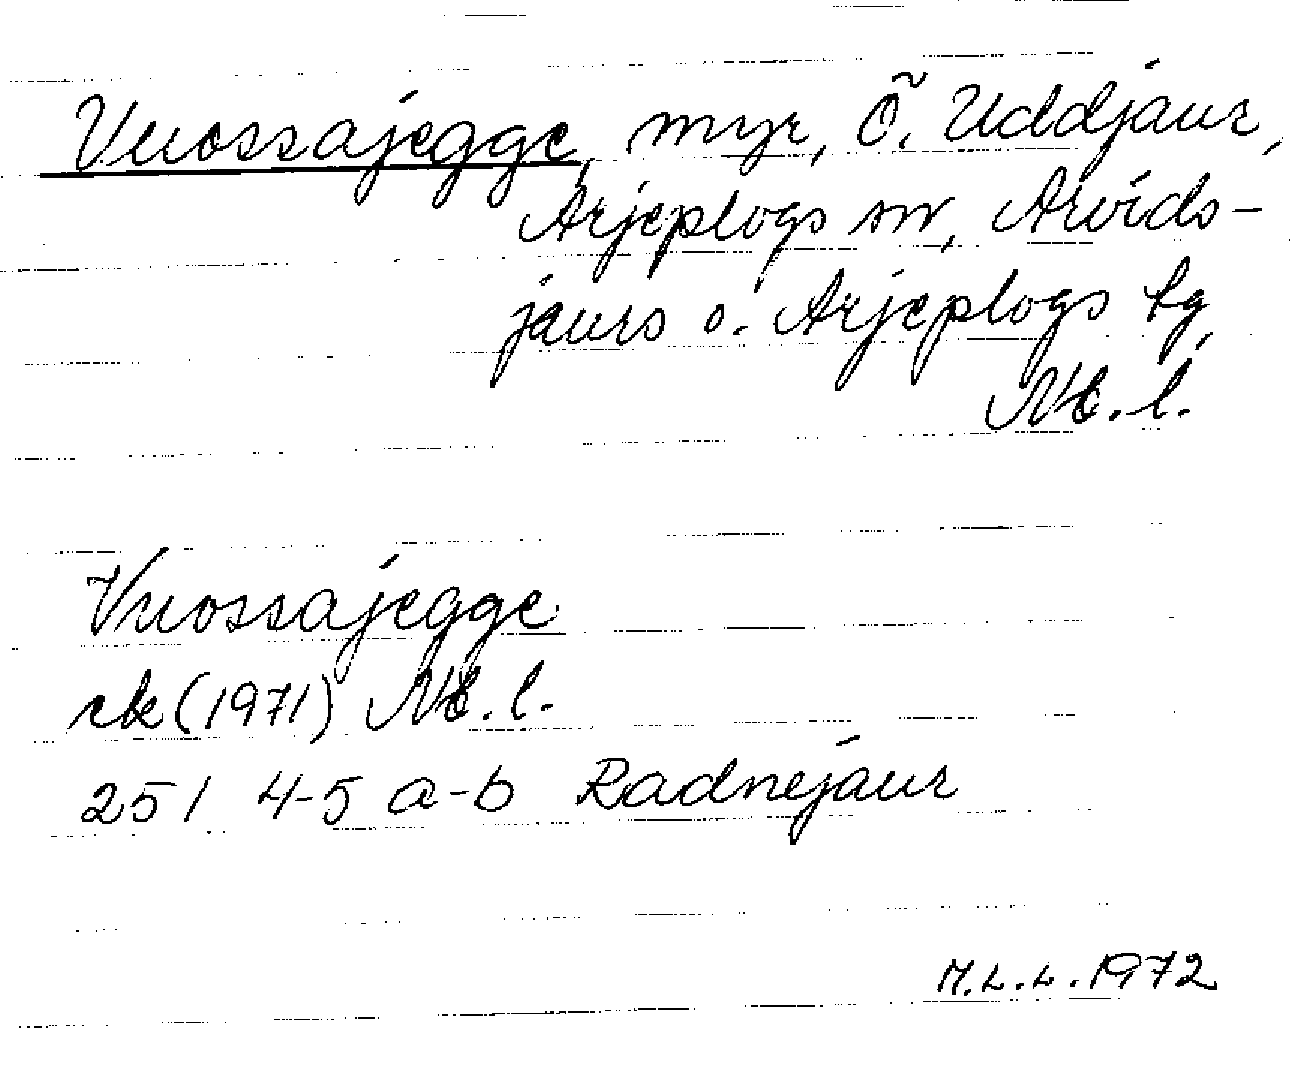 Vuossajegge, myr, Ö. Uddjaur,
Arjeplogs sn, Arvids-
jaurs o. Arjeplogs tg,
Nb. l.
Vuossajegge
rek (1971) Nb. l.
251 4-5 a-b Radnejaur
M.L.L. 1972